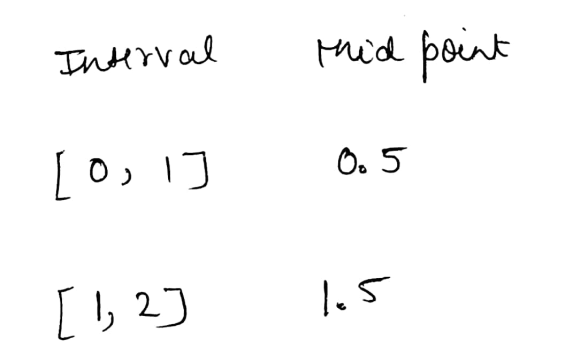 Interval Mid point
[0, 1] 0.5
[1, 2] 1.5